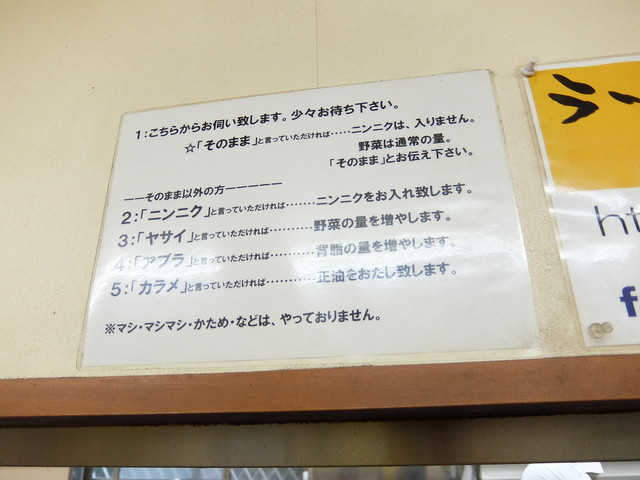 1:こちらからお伺い致します。少々お待ち下さい。
☆「そのまま」と言っていただければ……ニンニクは、入りません。
野菜は通常の量。
「そのまま」とお伝え下さい。
ーーそのまま以外の方ーーーーー
2:「ニンニク」と言っていただければ………ニンニクをお入れ致します。
3:「ヤサイ」と言っていただければ…………野菜の量を増やします。
4:「アブラ」と言っていただければ…………背脂の量を増やします。
5:「カラメ」と言っていただければ…………正油をおたし致します。
※マシ・マシマシ・かため・などは、やっておりません。
ラー
ht
f